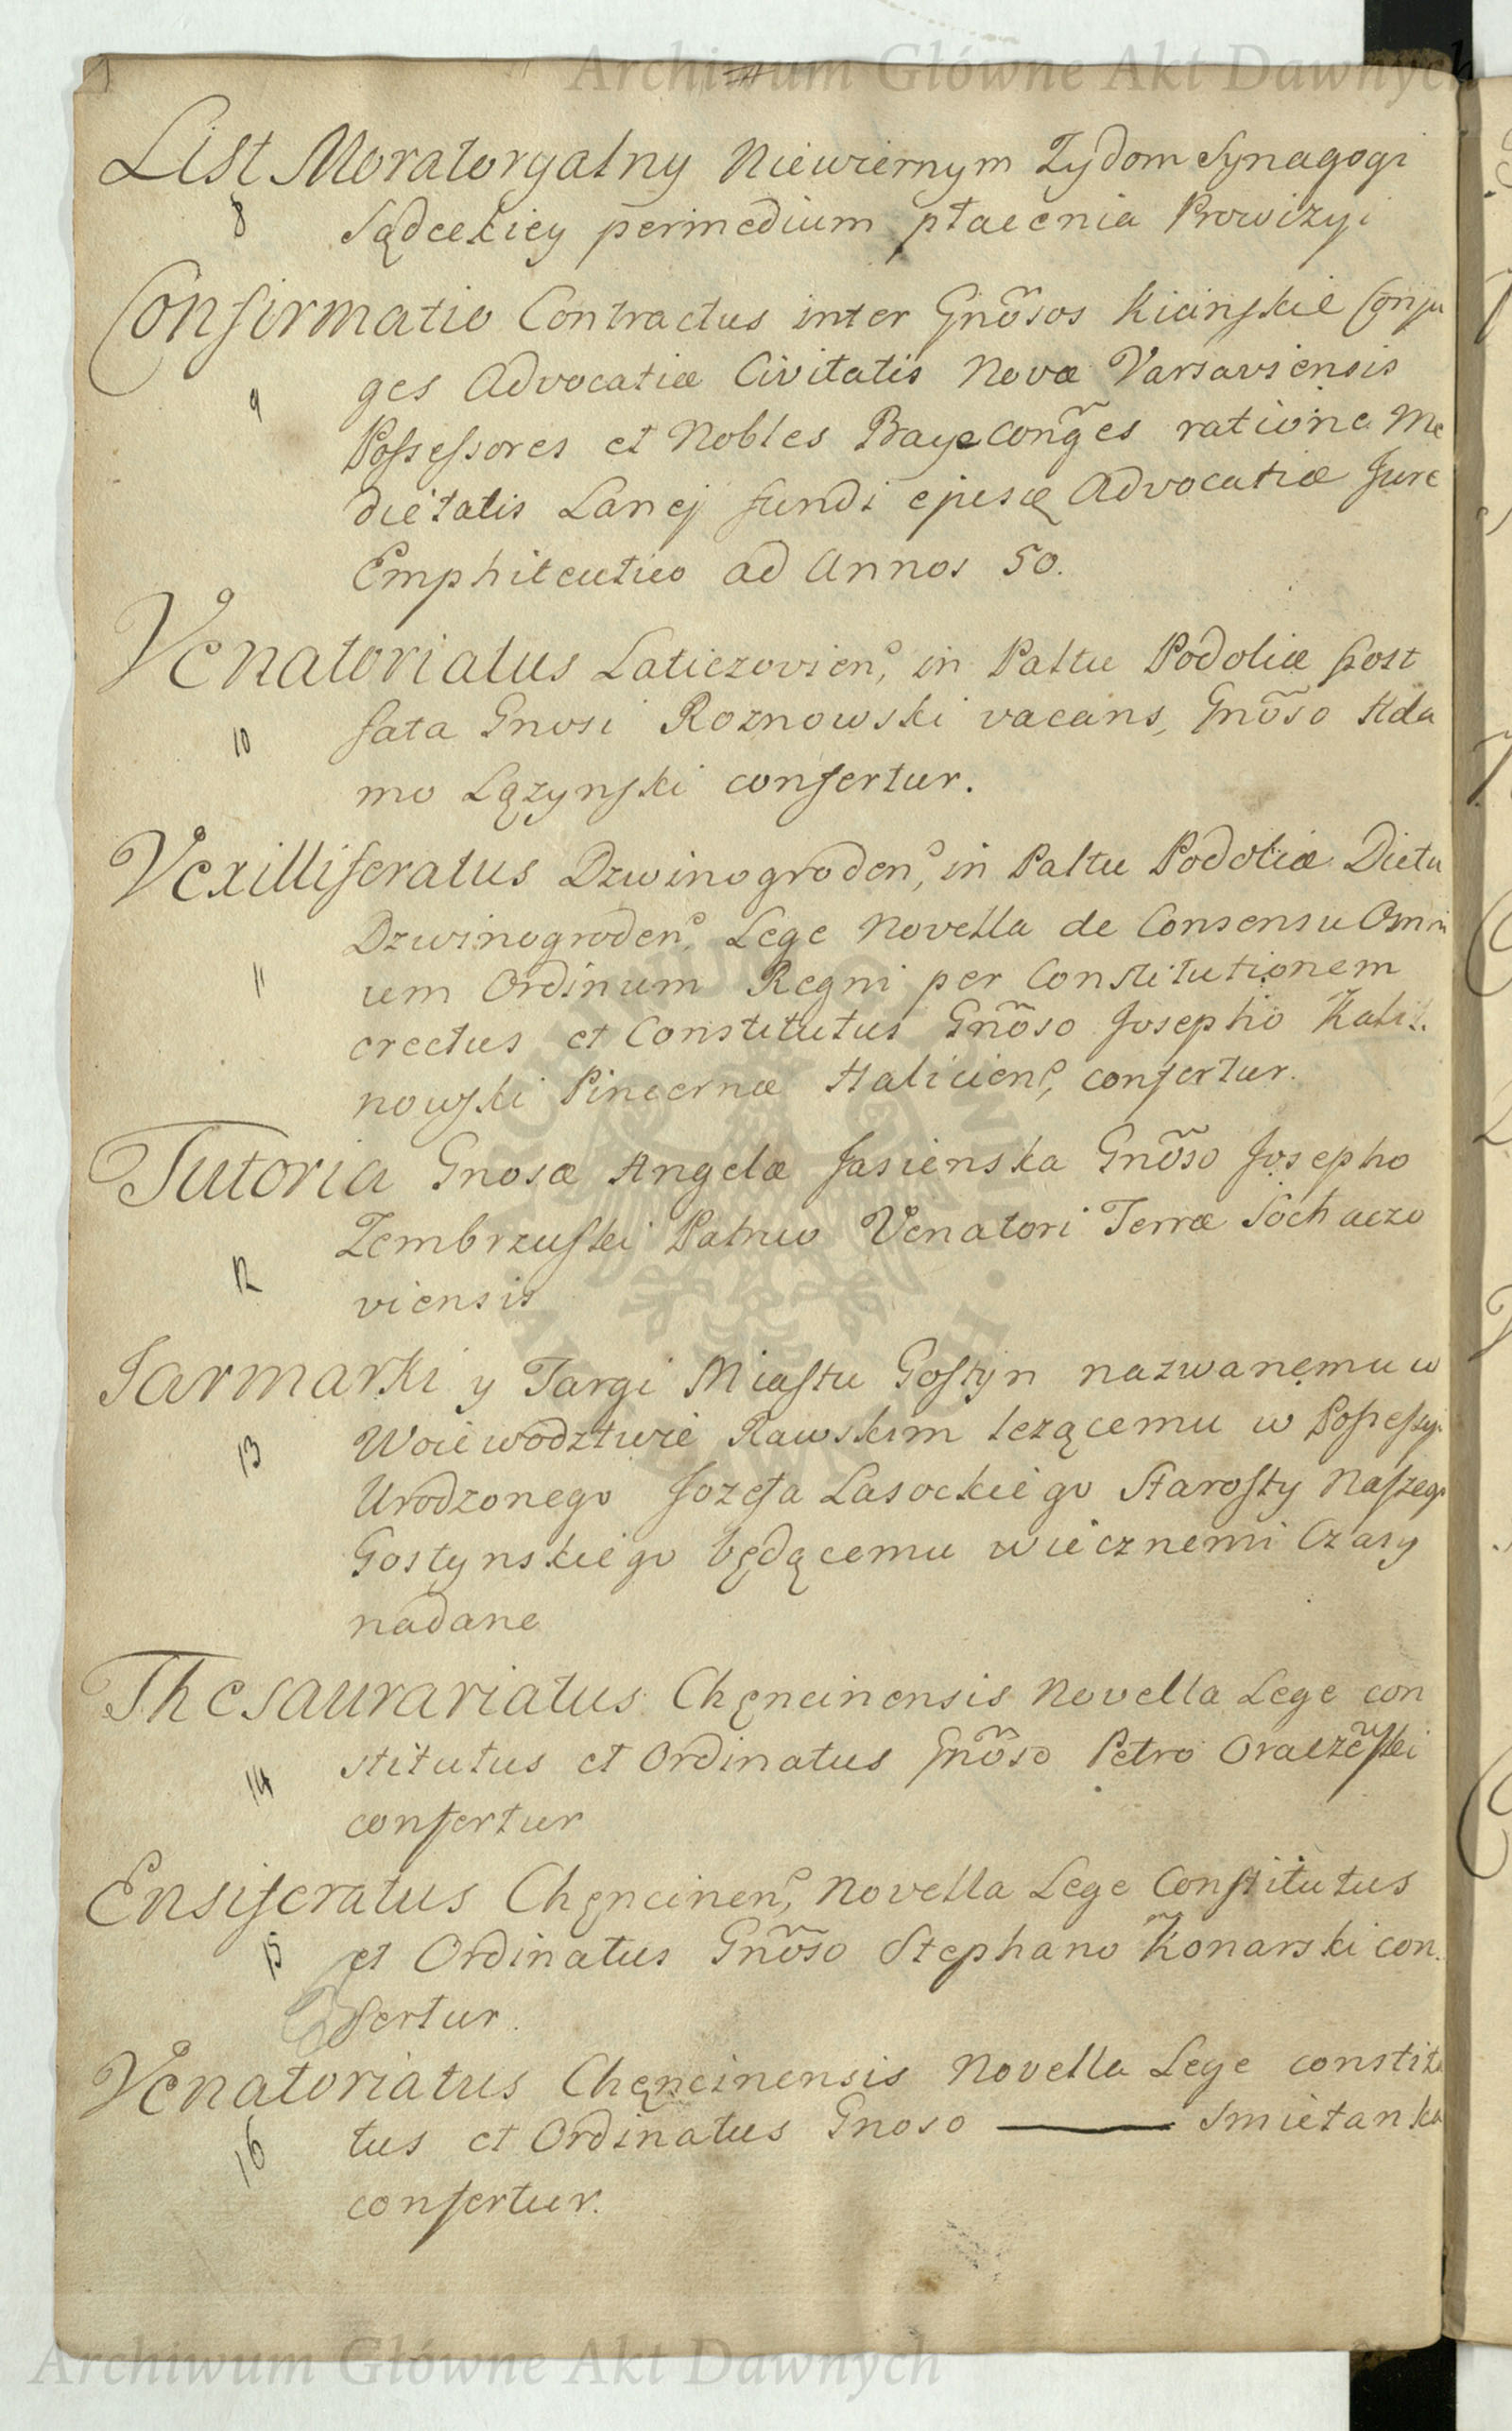 Archiwum Główne Akt Dawnych
List Moratoryalny Niewiernym Zydom Synagogi
8 Sądeckiey per medium płacenia Prowizyi
Confirmatio Contractus inter Gnõsos Kicinskie Conju
9 ges Advocatiæ Civitatis Novæ Varsaviensis
Possessores et Nobles Baye Conğes ratione Me
dietatis Lanej fundi ejusq Advocatiæ Jure
Emphiteutico ad Annos 50.
Venatoriatus Laticzovien, in Paltu Podoliæ post
10 fata Gnosi Roznowski vacans, Gnõso Ada
mo Lązynski confertur.
Vexilliferatus Dzwinogroden, in Paltu Podoliæ Dictu
Dzwinogroden, Lege Novella de Consensu Omni
11 um Ordinum Regni per Constitutionem
erectus et Constitutus Gnõso Josepho Kali
nowski Pincernæ Halicien, confertur.
Tutoria Gnosæ Angelæ Jasienska Gnõso Josepho
Zembrzuski Patruo Venatori Terræ Sochaczo
12 viensis
Jarmarki y Targi Miastu Gostyn nazwanemu w
13 Woiewodztwie Rawskim lezącemu w Possessyi
Urodzonego Jozefa Lasockiego Starosty Naszego
Gostynskiego będącemu wiecznemi Czasy
nadane
Thesaurariatus Chęncinensis Novella Lege con
14 stitutus et Ordinatus Gnõso Petro Oraczewski
confertur
Ensiferatus Chęncinen, Novella Lege Constitutus
15 et Ordinatus Gnõso Stephano Konarski con
fertur.
Venatoriatus Chęncinensis Novella Lege constitu
16 tus et Ordinatus Gnoso ——— Smietanka
confertur.
Archiwum Główne Akt Dawnych